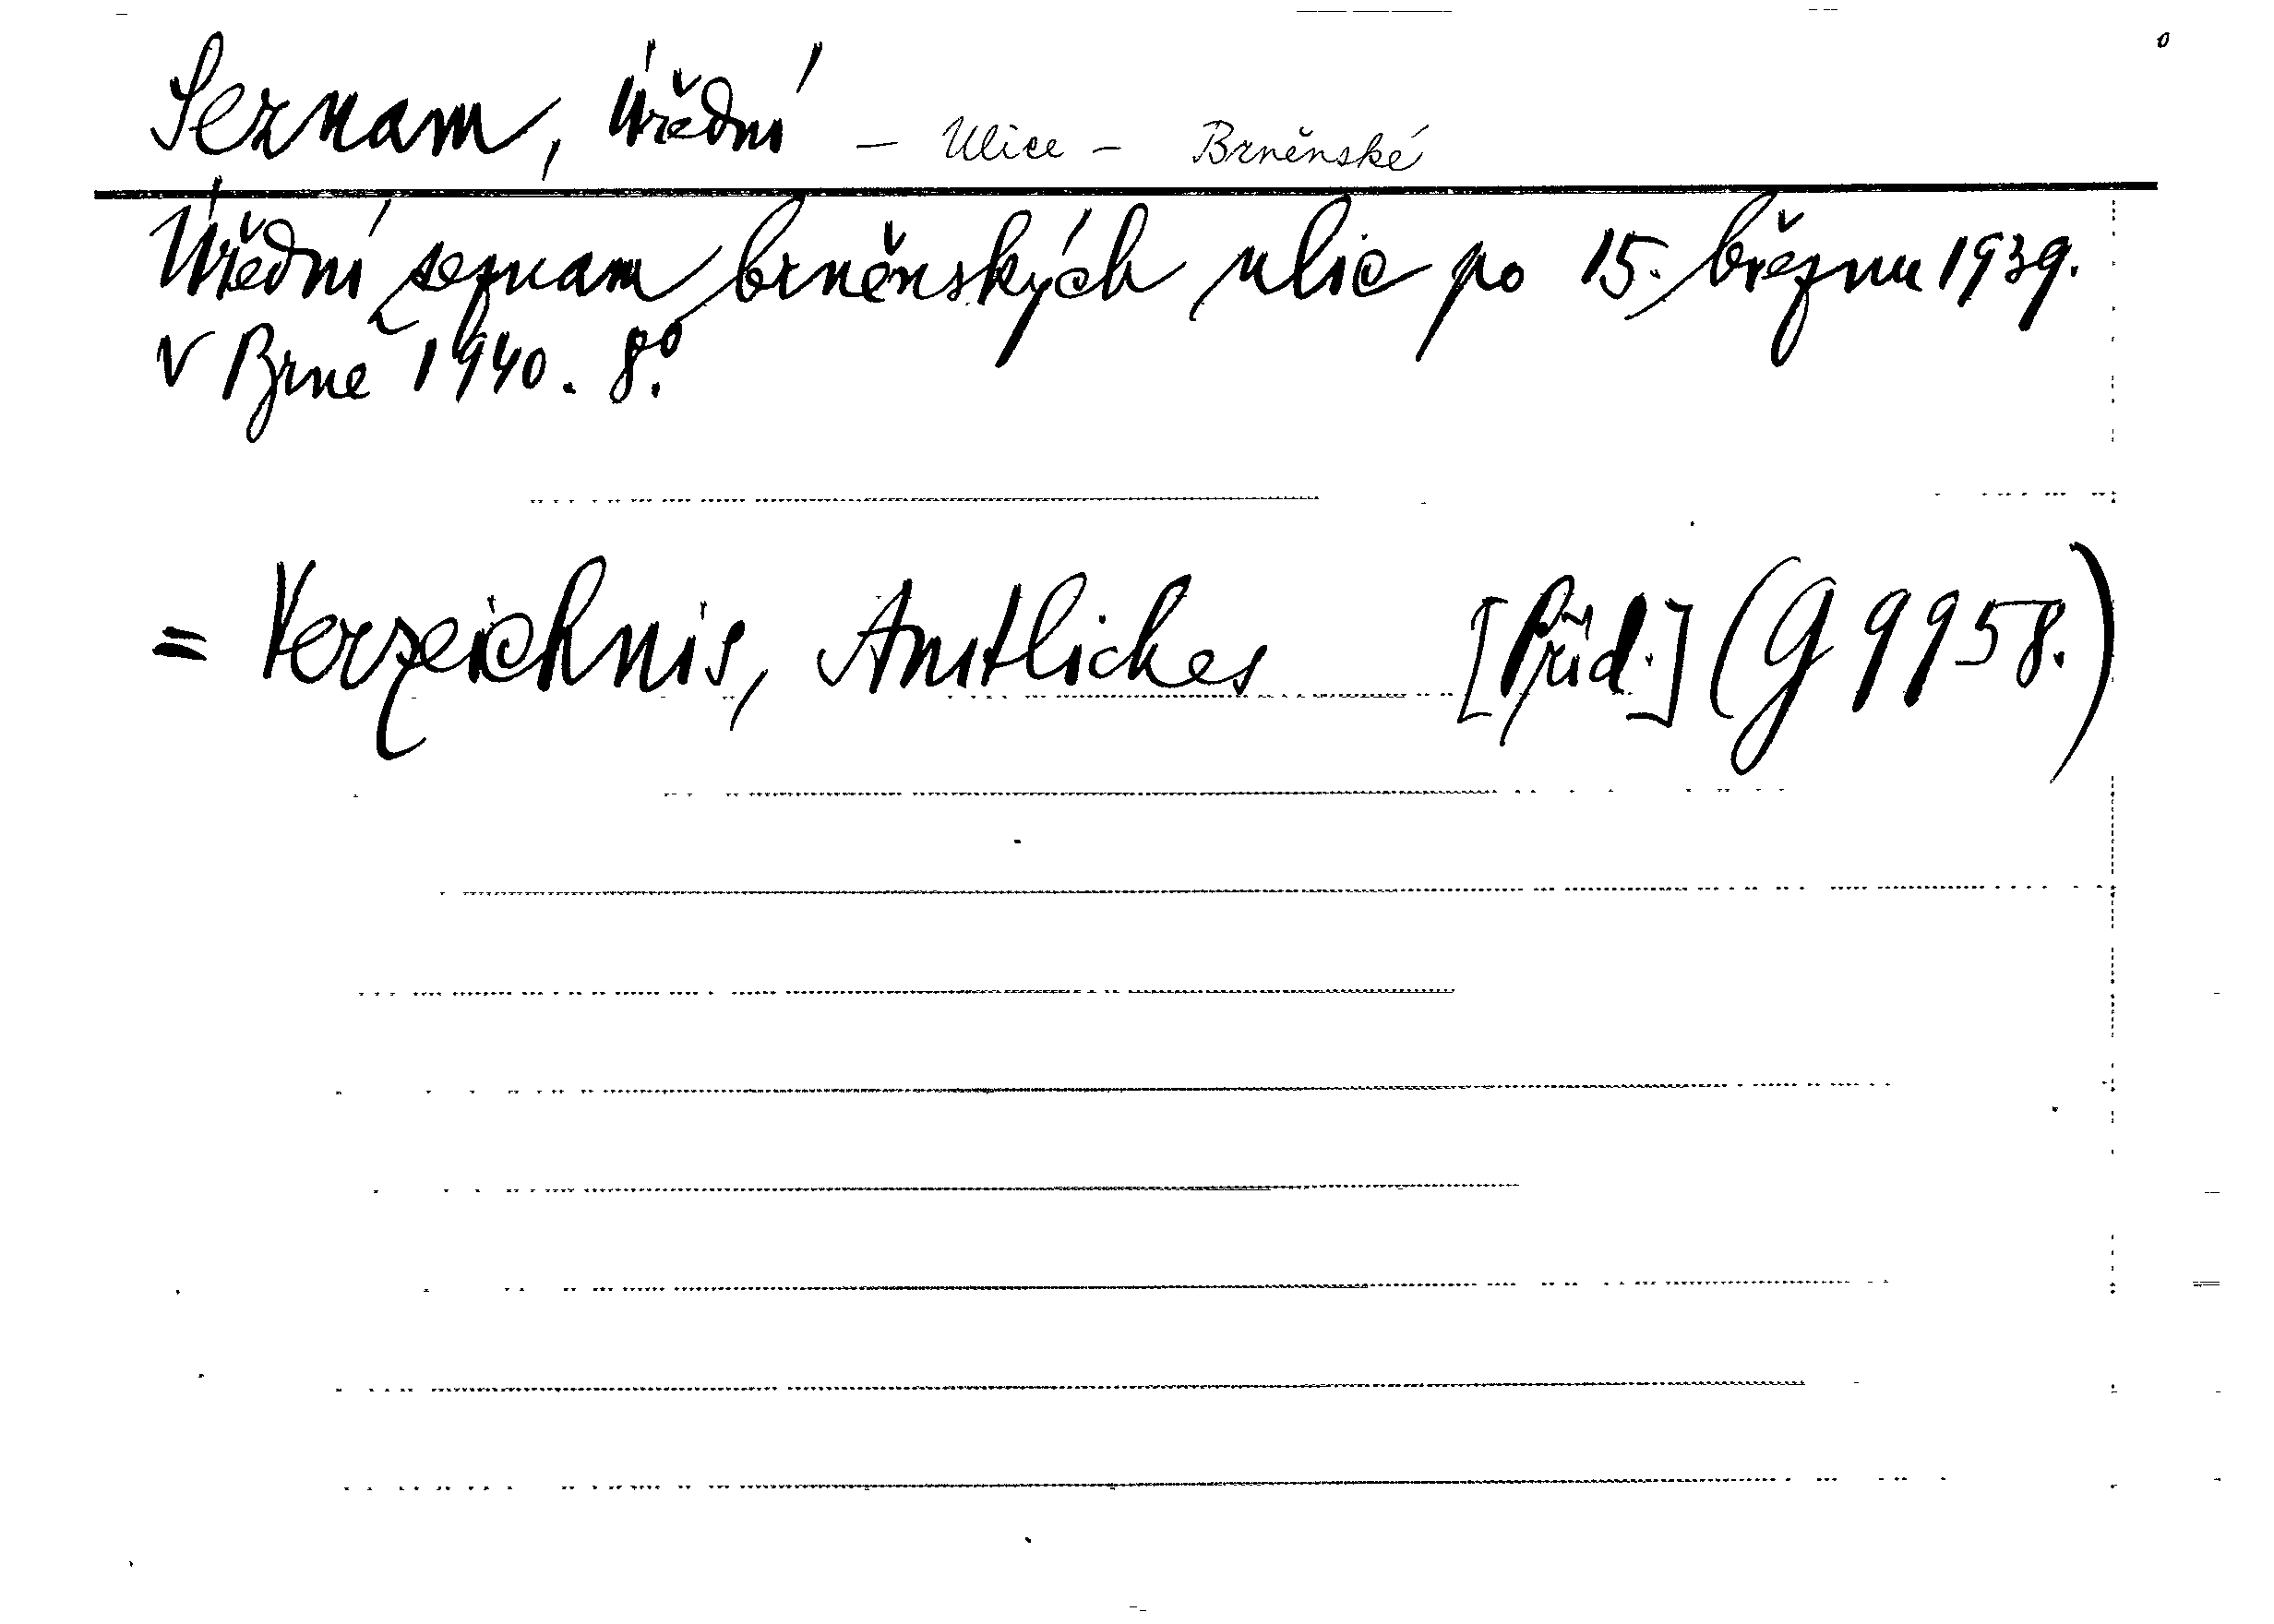 Seznam, Úřední – Ulice – Brněnské
Úřední seznam brněnských ulic po 15. březnu 1939.
V Brně 1940. 8°.
= Verzeichnis, Amtliches [Příd.] (G 9958.)